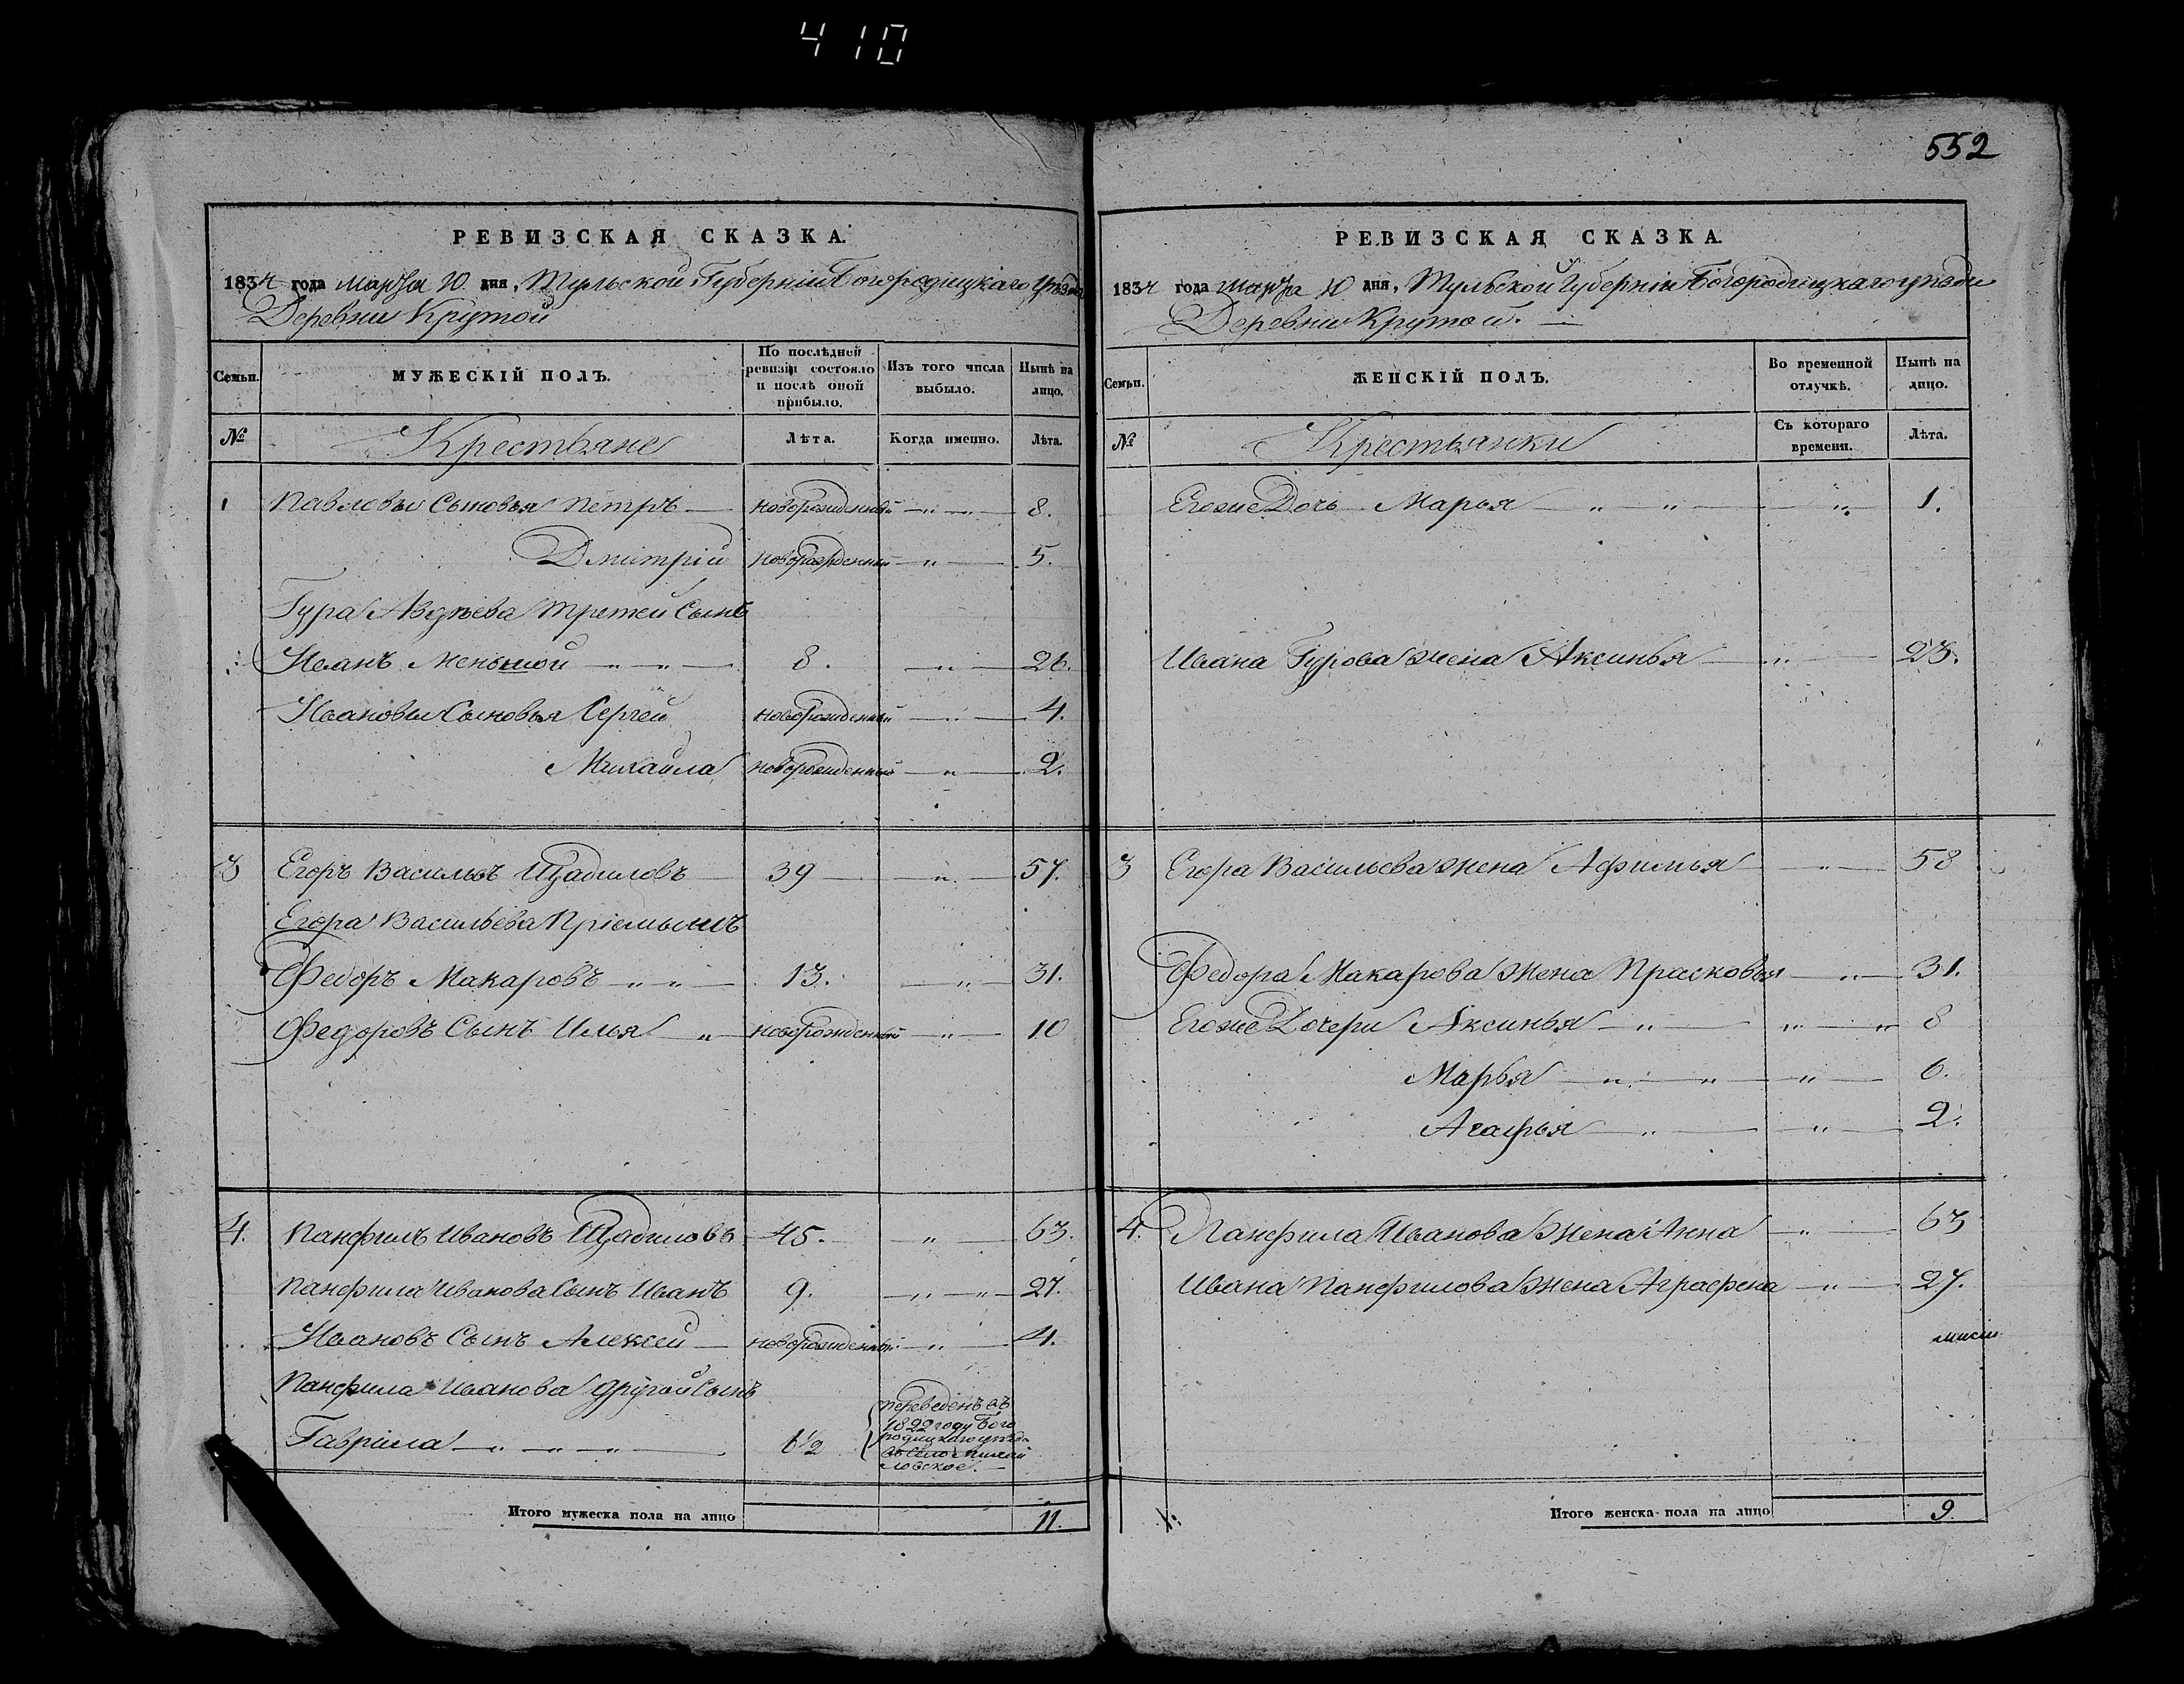 410
552
РЕВИЗСКАЯ СКАЗКА.
1834 года Марта 10 дня, Тульской Губернии Богородицкаго Уѣзда
Деревни Крутой
Семьи. МУЖЕСКІЙ ПОЛЪ. По послѣдней ревизіи состояло и послѣ оной прибыло. Изъ того числа выбыло. Нынѣ на лицо.
№ Крестьяне Лѣта. Когда именно. Лѣта.
1 Павловы Сыновья Петръ новорожденный 8.
Дмитрій новорожденный 5.
Гура Авдѣева третей Сынъ
Иванъ Меньшой 8. 26.
Ивановы Сыновья Сергей новорожденный 4.
Михайла новорожденный 2.
3 Егоръ Васильевъ Щадиловъ 39 57.
Егора Васильева Пріемышъ
Федоръ Макаровъ 13. 31.
Федоровъ Сынъ Илья новорожденный 10
4. Панфилъ Ивановъ Щадиловъ 45. 63.
Панфила Иванова Сынъ Иванъ 9. 27.
Ивановъ Сынъ Алексей новорожденный 4.
Панфила Иванова другой Сынъ
Гаврила 6½ переведенъ въ
1822 году Бого
родицкаго уѣзда
въ село Михай
ловское.
Итого мужеска пола на лицо 11.
РЕВИЗСКАЯ СКАЗКА.
1834 года Марта 10 дня, Тульской Губерніи Богородицкаго уѣзда
Деревни Крутой.
Семьи. ЖЕНСКІЙ ПОЛЪ. Во временной отлучкѣ. Нынѣ на лицо.
№ Крестьянки Съ котораго времени. Лѣта.
Егоже Дочь Марья 1.
Ивана Гурова жена Аксинья 23.
3 Егора Васильева жена Афимья 58
Федора Макарова Жена Прасковья 31.
Егоже Дочери Аксинья 8
Марья 6.
Агафья 2.
4. Панфила Иванова Жена Анна 63
Ивана Панфилова Жена Аграфена 27.
Итого женска пола на лицо 9.